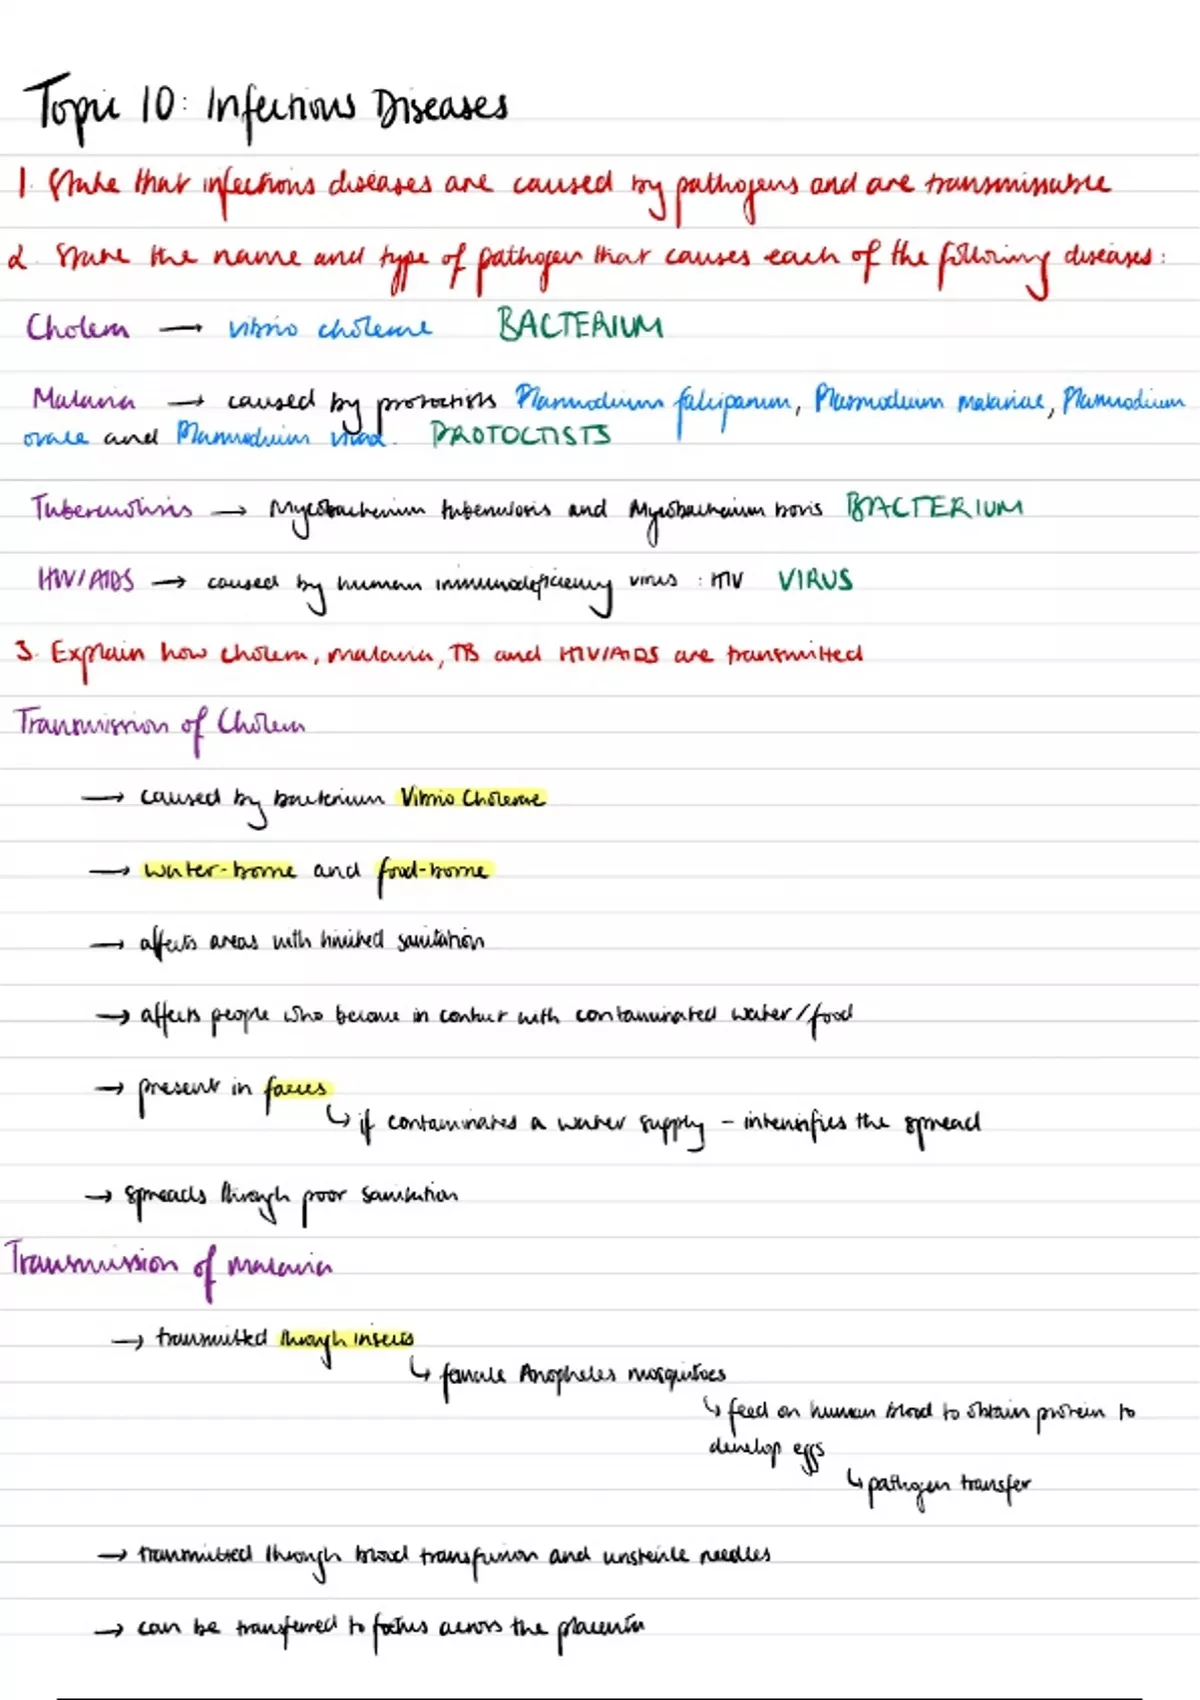 Topic 10: Infectious Diseases
1. State that infectious diseases are caused by pathogens and are transmissable
2. State the name and type of pathogen that causes each of the following diseases:
Cholera → vibrio cholerae BACTERIUM
Malaria → caused by protoctists Plasmodium falciparum, Plasmodium malariae, Plasmodium
ovale and Plasmodium vivax. PROTOCTISTS
Tuberculosis → Mycobacterium tuberculosis and Mycobacterium bovis BACTERIUM
HIV/AIDS → caused by human immunodeficiency virus : HIV VIRUS
3. Explain how cholera, malaria, TB and HIV/AIDS are transmitted
Transmission of Cholera
→ caused by bacterium Vibrio Cholerae
→ water-borne and food-borne
→ affects areas with limited sanitation
→ affects people who become in contact with contaminated water/food
→ present in faeces
↳ if contaminates a water supply – intensifies the spread
→ spreads through poor sanitation
Transmission of malaria
→ transmitted through insects
↳ female Anopheles mosquitoes
↳ feed on human blood to obtain protein to
develop eggs
↳ pathogen transfer
→ transmitted through blood transfusion and unsterile needles
→ can be transferred to foetus across the placenta